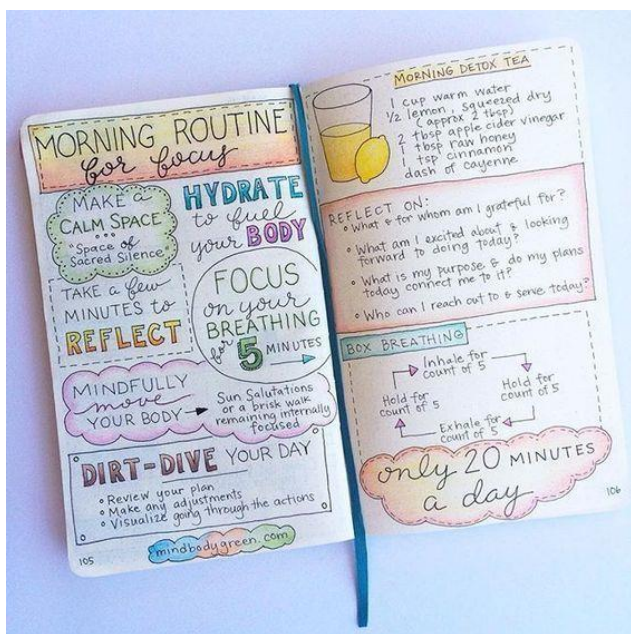 MORNING ROUTINE
for focus
MAKE A
CALM SPACE
Space of
Sacred Silence
HYDRATE
to fuel
your BODY
TAKE a few
MINUTES to
REFLECT
FOCUS
on your
BREATHING
for 5 MINUTES
MINDFULLY
move
YOUR BODY
Sun Salutations
or a brisk walk
remaining internally
focused
DIRT-DIVE YOUR DAY
• Review your plan
• Make any adjustments
• Visualize going through the actions
mindbodygreen.com
105
MORNING DETOX TEA
1 cup warm water
½ lemon, squeezed dry
(approx 2 tbsp)
2 tbsp apple cider vinegar
1 tbsp raw honey
1 tsp cinnamon
dash of cayenne
REFLECT ON:
• What & for whom am I grateful for?
• What am I excited about & looking
forward to doing today?
• What is my purpose & do my plans
today connect me to it?
• Who can I reach out to & serve today?
BOX BREATHING
Inhale for
count of 5
Hold for
count of 5
Exhale for
count of 5
Hold for
count of 5
only 20 MINUTES
a day
106